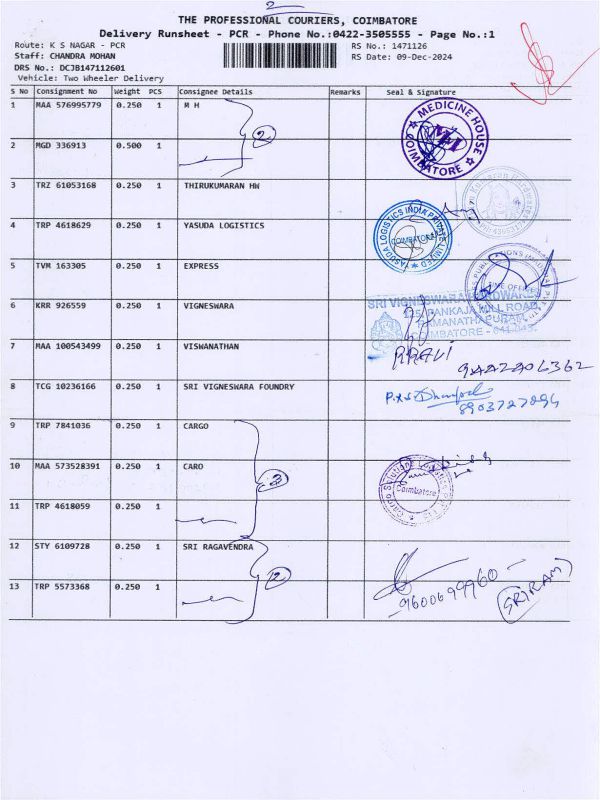 2
THE PROFESSIONAL COURIERS, COIMBATORE
Delivery Runsheet - PCR - Phone No.:0422-3505555 - Page No.:1
Route: K S NAGAR - PCR
RS No.: 1471126
Staff: CHANDRA MOHAN
RS Date: 09-Dec-2024
DRS No.: DCJB147112601
Vehicle: Two Wheeler Delivery
S No Consignment No Weight PCS Consignee Details Remarks Seal & Signature
1 MAA 576995779 0.250 1 M H
MEDICINE HOUSE
COIMBATORE
2
2 MGD 336913 0.500 1
3 TRZ 61053168 0.250 1 THIRUKUMARAN HW
4 TRP 4618629 0.250 1 YASUDA LOGISTICS
YASUDA LOGISTICS INDIA PRIVATE LIMITED
COIMBATORE
5 TVM 163305 0.250 1 EXPRESS
6 KRR 926559 0.250 1 VIGNESWARA
SRI VIGNESWARA HARDWARE
PANKAJA MILL ROAD
RAMANATHAPURAM
COIMBATORE - 641 045
7 MAA 100543499 0.250 1 VISWANATHAN
8 TCG 10236166 0.250 1 SRI VIGNESWARA FOUNDRY
8903727094
9 TRP 7841036 0.250 1 CARGO
10 MAA 573528391 0.250 1 CARO
3
Coimbatore
11 TRP 4618059 0.250 1
12 STY 6109728 0.250 1 SRI RAGAVENDRA
2
13 TRP 5573368 0.250 1
9600699960
SRIRAM